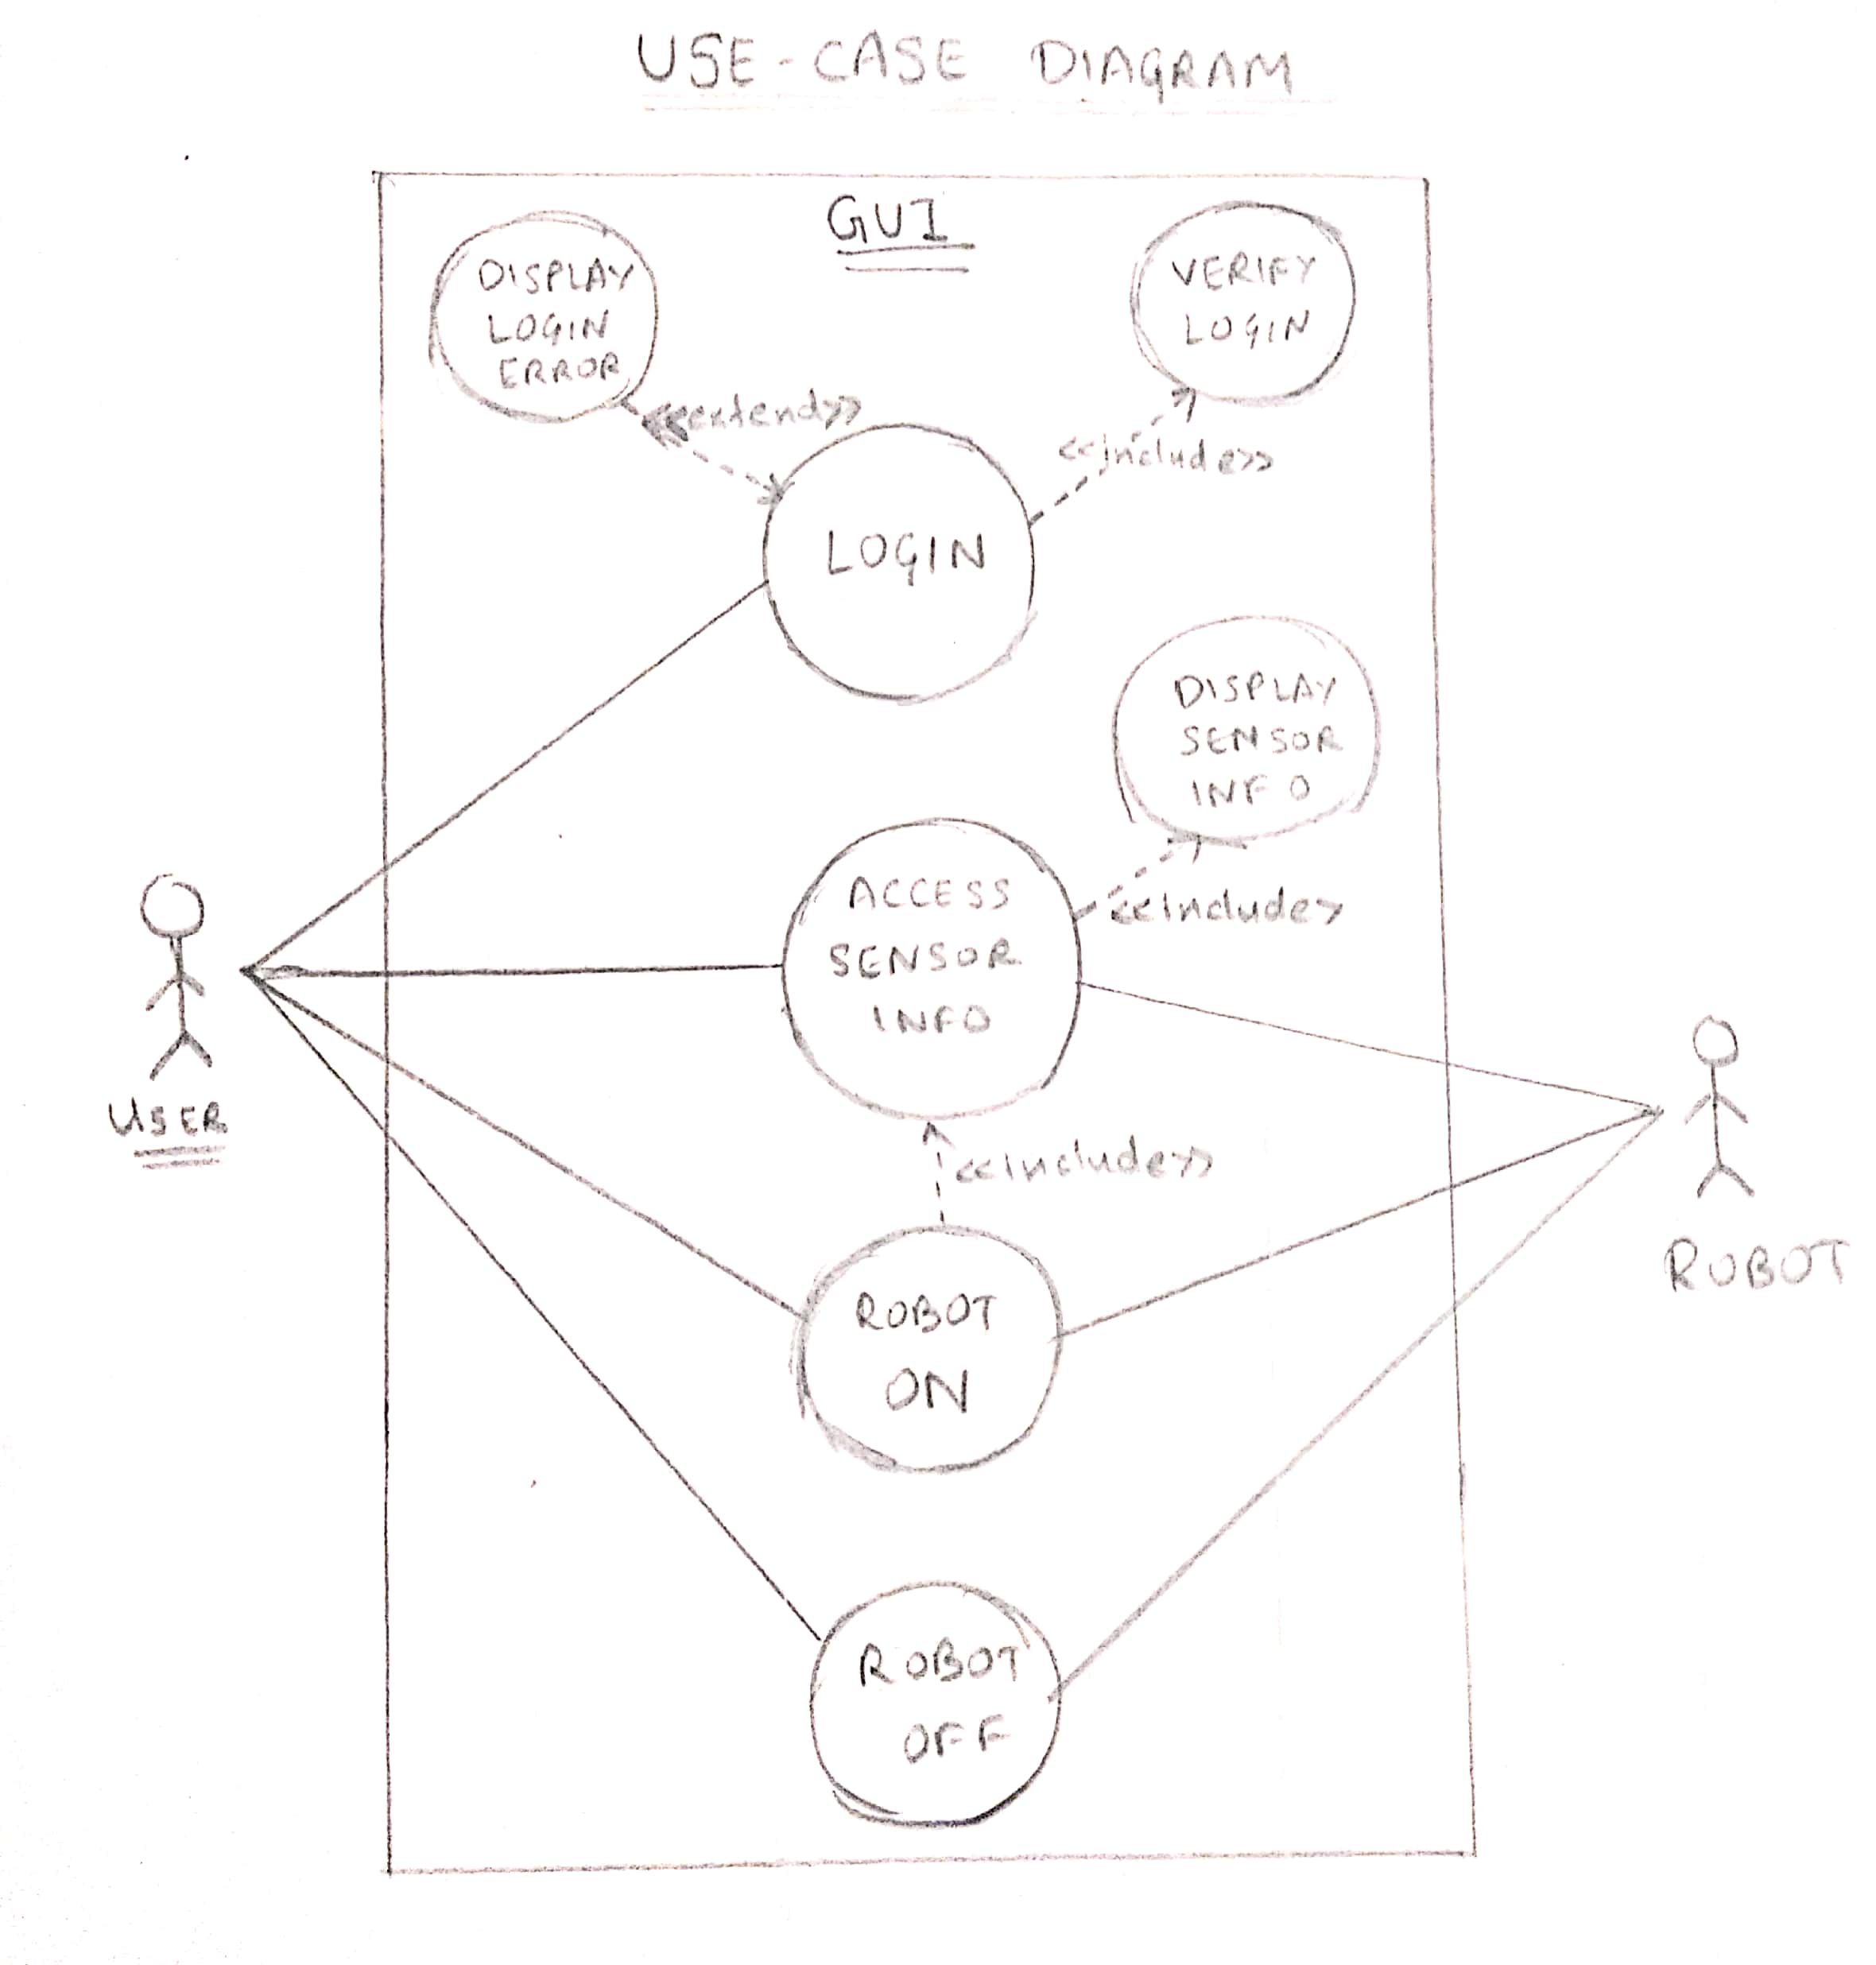 USE-CASE DIAGRAM
GUI
DISPLAY
LOGIN
ERROR
VERIFY
LOGIN
<<extend>>
<<include>>
LOGIN
DISPLAY
SENSOR
INFO
ACCESS
SENSOR
INFO
<<include>
USER
<<include>>
ROBOT
ROBOT
ON
ROBOT
OFF